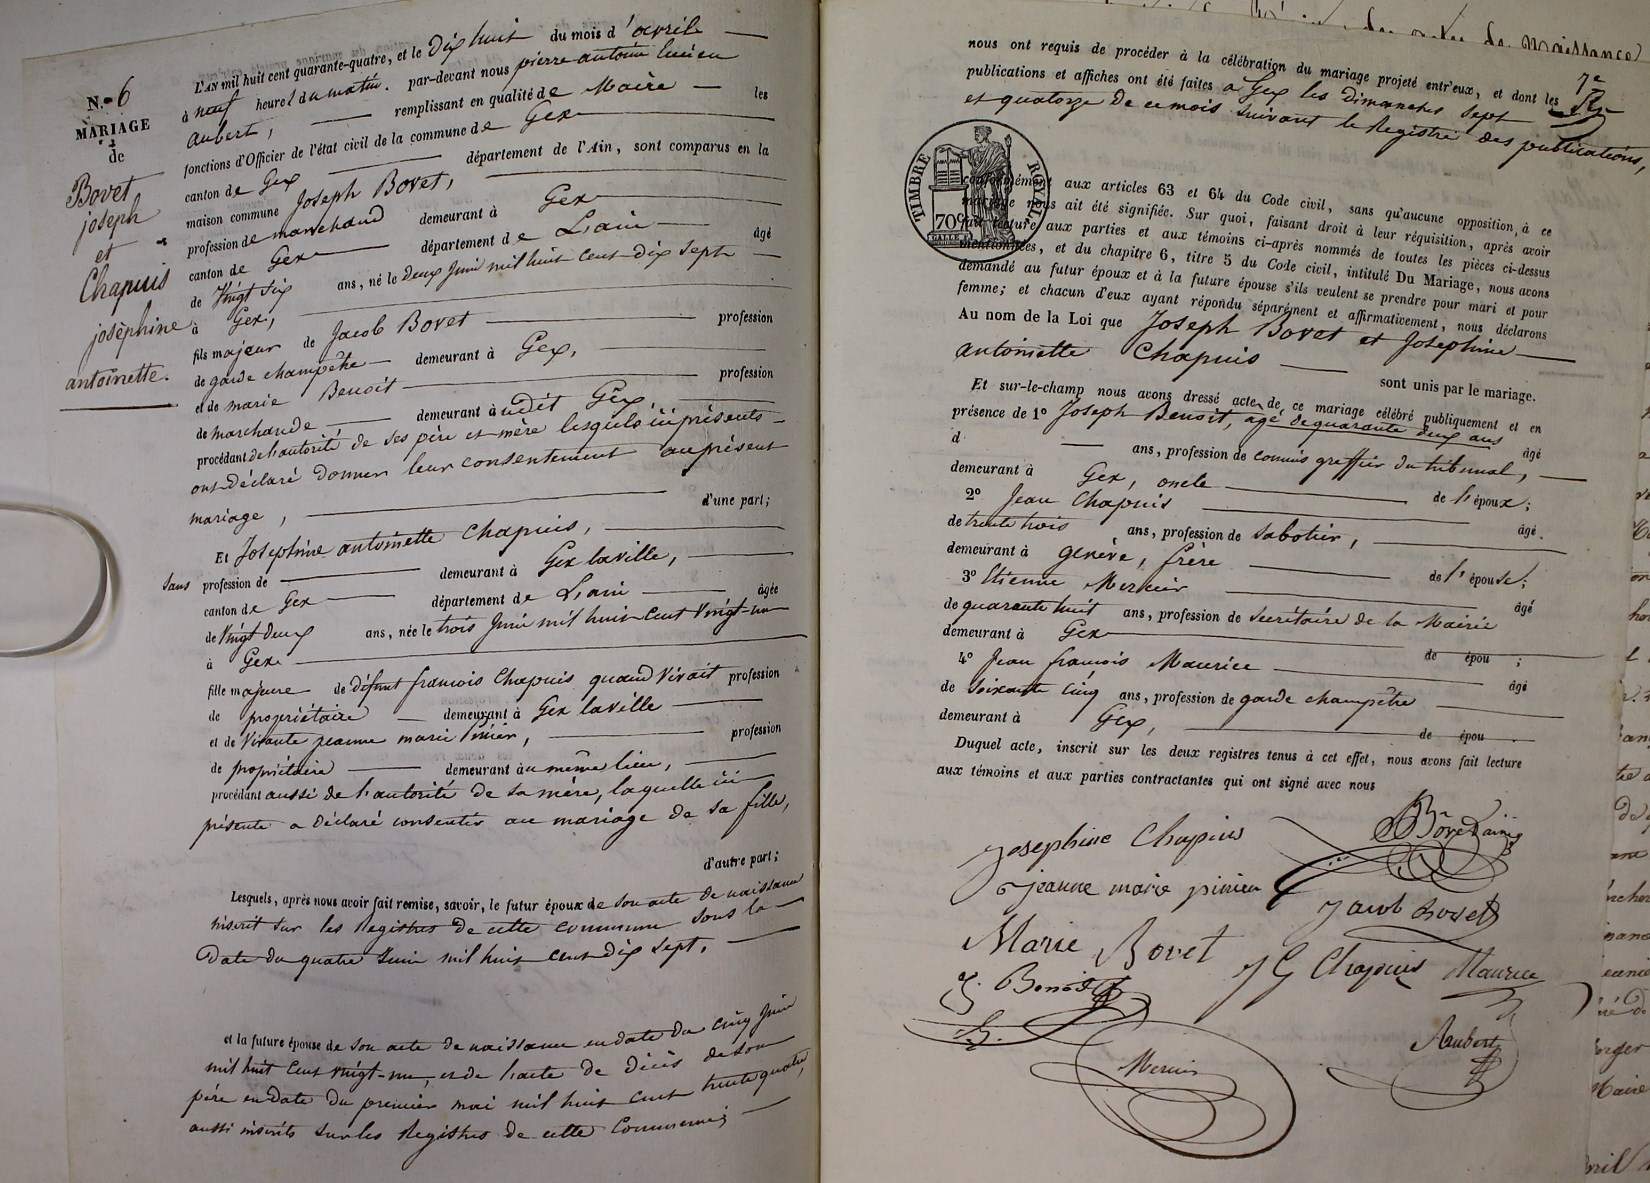 N.° 6
MARIAGE
de
Bovet
joseph
et
Chapuis
joséphine
antoinette.
L'AN mil huit cent quarante-quatre, et le Dix huit du mois d'avril
à neuf heures du matin. par-devant nous pierre antoine lucien
aubert, remplissant en qualité de Maire les
fonctions d'Officier de l'état civil de la commune de Gex
canton de Gex département de l'Ain, sont comparus en la
maison commune Joseph Bovet,
profession de marchand demeurant à Gex
canton de Gex département de L'ain âgé
de Vingt six ans, né le deux Juin mil huit cent dix sept
à Gex,
fils majeur de Jacob Bovet profession
de garde champêtre demeurant à Gex,
et de marie Benoit profession
de marchande demeurant à udit Gex,
procédant de l'autorité de ses père et mère lesquels ici présents
ont déclaré donner leur consentement au présent
mariage, d'une part;
Et Josephine antoinette Chapuis,
sans profession de demeurant à Gex laville,
canton de Gex département de L'ain âgée
de Vingt deux ans, née le trois Juin mil huit Cent Vingt-un
à Gex
fille majeure de défunt francois Chapuis quand Vivait profession
de propriétaire demeurant à Gex laville
et de Vivante jeanne marie profession
de propriétaire demeurant au même lieu,
procédant aussi de l'autorité de sa mère, laquelle ici
présente a déclaré consentir au mariage de sa fille,
d'autre part;
Lesquels, après nous avoir fait remise, savoir, le futur époux de son acte de naissance
inscrit sur les Registres de cette commune sous la
Date du quatre Juin mil huit cent dix sept,
et la future épouse de son acte de naissance en date du Cinq Juin
mil huit Cent vingt-un, et de l'acte de décès de son
père en date du premier mai mil huit cent trente quatre,
aussi inscrits sur les Registres de cette Commune;
nous ont requis de procéder à la célébration du mariage projeté entr'eux, et dont les
publications et affiches ont été faites à Gex les Dimanches sept
et quatorze de ce mois suivant le Registre des publications,
TIMBRE ROYAL
70c
conformément aux articles 63 et 64 du Code civil, sans qu'aucune opposition à ce
mariage nous ait été signifiée. Sur quoi, faisant droit à leur réquisition, après avoir
fait lecture aux parties et aux témoins ci-après nommés de toutes les pièces ci-dessus
mentionnées, et du chapitre 6, titre 5 du Code civil, intitulé Du Mariage, nous avons
demandé au futur époux et à la future épouse s'ils veulent se prendre pour mari et pour
femme; et chacun d'eux ayant répondu séparément et affirmativement, nous déclarons
Au nom de la Loi que Joseph Bovet et Josephine
antoinette Chapuis sont unis par le mariage.
Et sur-le-champ nous avons dressé acte de ce mariage célébré publiquement et en
présence de 1° Joseph Benoit, agé de quarante deux ans âgé
d ans, profession de commis greffier du tribunal,
demeurant à Gex, oncle de l'époux;
2° Jean Chapuis âgé
de trente trois ans, profession de sabotier,
demeurant à genève, frère de l'épouse;
3° Etienne Mercier âgé
de quarante huit ans, profession de secrétaire de la Mairie
demeurant à Gex de épou ;
4° Jean françois Maurice âgé
de soixante cinq ans, profession de garde champêtre
demeurant à Gex, de épou
Duquel acte, inscrit sur les deux registres tenus à cet effet, nous avons fait lecture
aux témoins et aux parties contractantes qui ont signé avec nous
Josephine Chapuis
Bovet ainé
jeanne marie
Jacob Bovet
Marie Bovet
J G Chapuis Maurice
J. Benoit
Aubert
Mercier